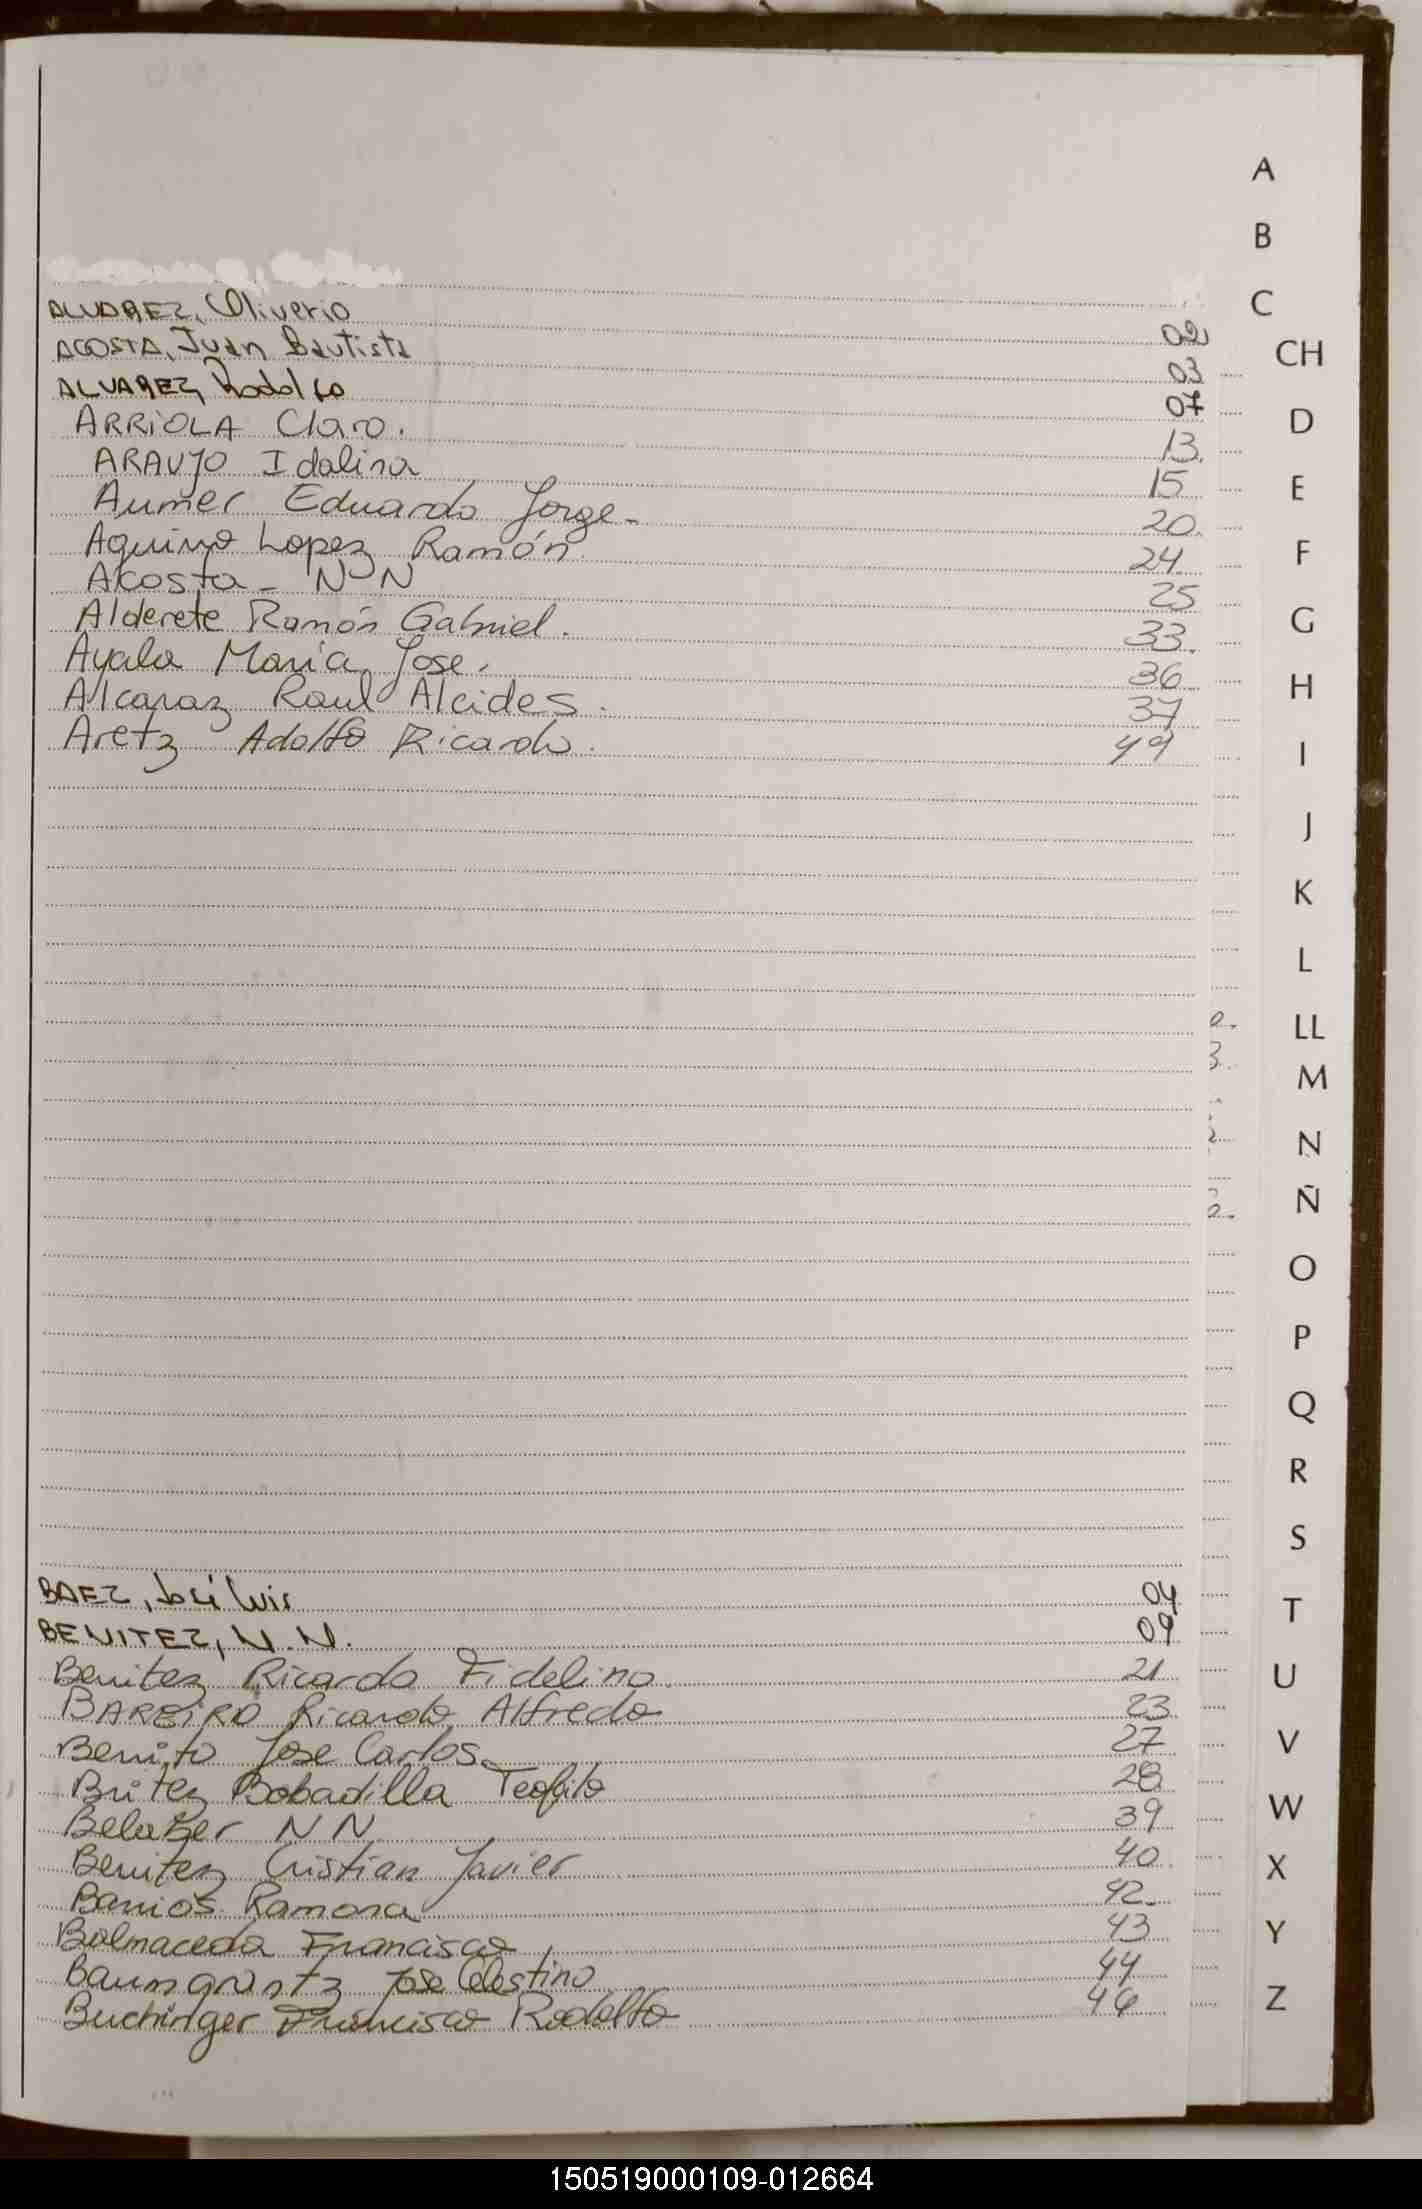 A
B
C
CH
D
E
F
G
H
I
J
K
L
LL
M
N
Ñ
O
P
Q
R
S
T
U
V
W
X
Y
Z
ALVAREZ, Oliverio 02
ACOSTA, Juan Bautista 03
ALVAREZ, Rodolfo 07
ARRIOLA Claro. 13.
ARAUJO Idalina 15
Aumer Eduardo Jorge- 20.
Aquino Lopez Ramón. 24
Acosta - N N 25
Alderete Ramón Gabriel. 33.
Ayala María Jose. 36
Alcaraz Raul Alcides. 37
Aretz Adolfo Ricardo. 49
BAEZ, José Luis 04
BENITEZ, N. N. 09
Benitez Ricardo Fidelino. 21
BAREIRO Ricardo Alfredo 23
Benito Jose Carlos. 27
Britez Bobadilla Teofilo 28
N N 39
Benitez Cristian Javier 40
Barrios Ramona 42
Balmaceda Francisco 43
Baumgrantz Jose Celestino 44
Buchinger Francisco Rodolfo 46
150519000109-012664